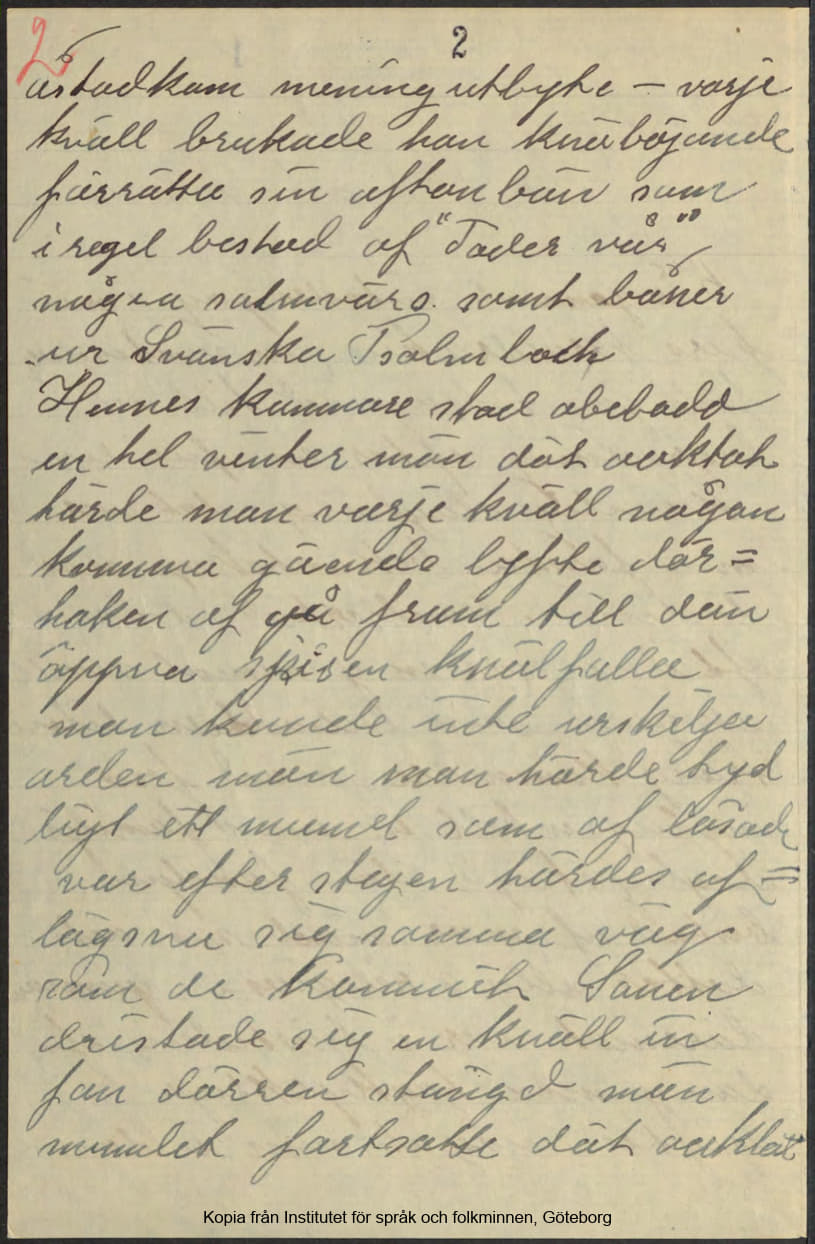 2 2
åstadkom mening utbyte – varje
kväll brukade han knäböjande
förrätta sin aftonbön som
i regel bestod af "Fader vår"
några salmvärs. samt böner
ur Svänska Psalmbock
Hennes kammare stod obebodd
en hel vinter män dät oaktat
hörde man varje kväll någon
komma gående lyfte dör=
haken af gå fram till dän
öppna spisen knälfalla
man kunde inte urskilja
orden män man hörde tyd
ligt ett mumel som af läsade
var efter stegen hördes af=
lägsna sig samma väg
som de kommit Sonen
dristade sig en kväll in
fan dörren stängd män
mumlet fortsatte dät oaktat
Kopia från Institutet för språk och folkminnen, Göteborg